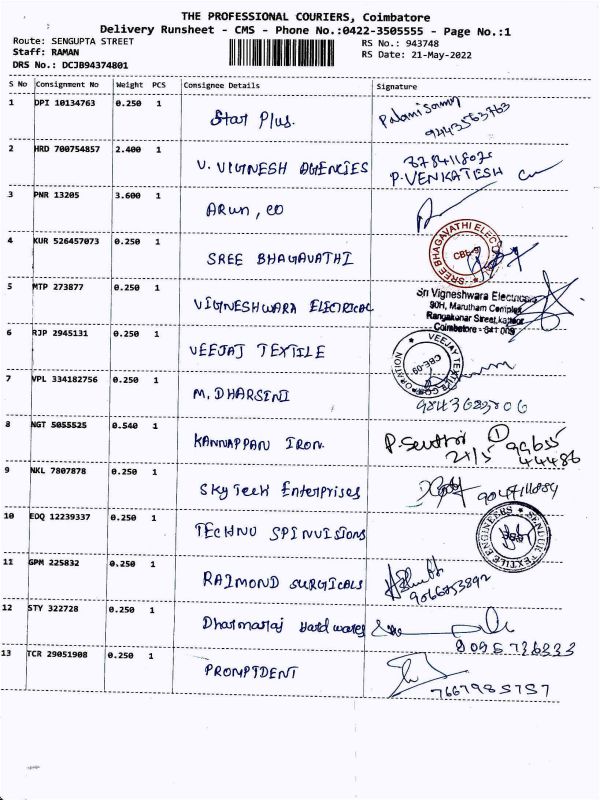 THE PROFESSIONAL COURIERS, Coimbatore
Delivery Runsheet - CMS - Phone No.:0422-3505555 - Page No.:1
Route: SENGUPTA STREET RS No.: 943748
Staff: RAMAN RS Date: 21-May-2022
DRS No.: DCJB94374801
S No Consignment No Weight PCS Consignee Details Signature
1 DPI 10134763 0.250 1 Star Plus. Palanisamy
9443563763
2 HRD 700754857 2.400 1 V. VIGNESH AGENCIES
P. VENKATESH
3 PNR 13205 3.600 1 Arun, co
4 KUR 526457073 0.250 1 SREE BHAGAVATHI SREE BHAGAVATHI CBE-9
5 MTP 273877 0.250 1 VIGNESHWARA ELECTRICAL Sri Vigneshwara Electricals
90H, Marutham Complex
Rangakonar Street, kattoor
Coimbatore - 641 009
6 RJP 2945131 0.250 1 VEEJAJ TEXTILE VEEJAY TEXTILE CORPORATION CBE-09
7 VPL 334182756 0.250 1 M. DHARSINI
8 NGT 5055525 0.540 1 KANNAPPAN IRON. P. Senthil 1 99655
21/5 44486
9 NKL 7807878 0.250 1 Sky Teck Enterprises 9047111884
10 EDQ 12239337 0.250 1 TECHNO SPINVISIONS SENDUR TEXTILE ENGINEERS
11 GPM 225832 0.250 1 RAIMOND SURGICALS
9066753892
12 STY 322728 0.250 1 Dharmaraj Hardwares
8095736333
13 TCR 29051908 0.250 1 PROMPTDENT
7667985757